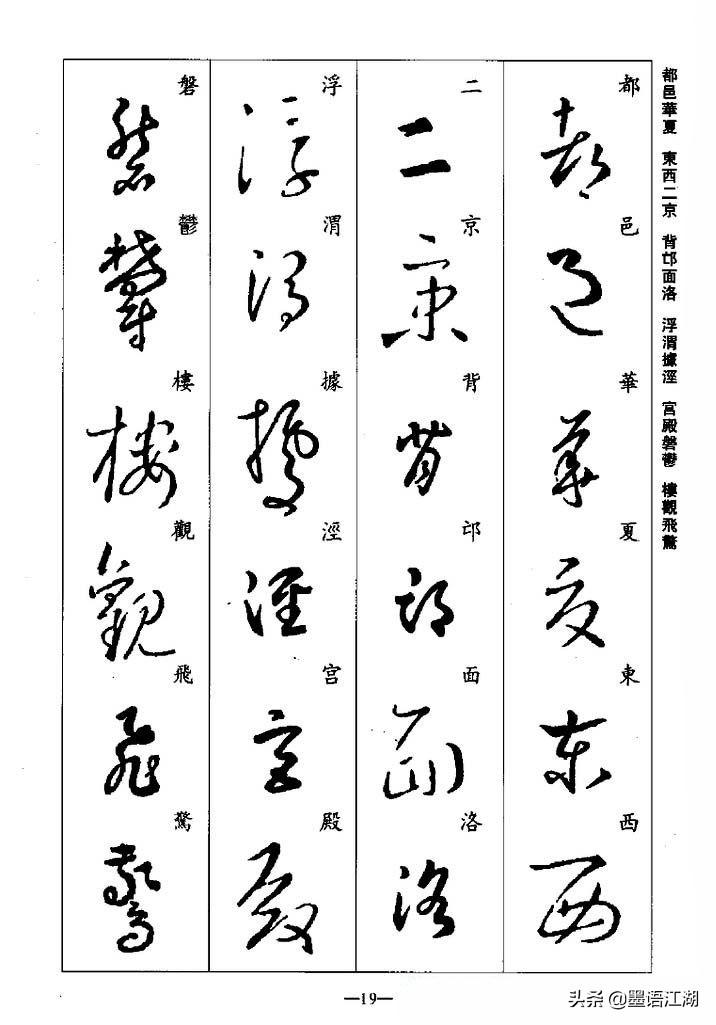 都邑華夏 東西二京 背邙面洛 浮渭據涇 宮殿磐鬱 樓觀飛驚
都 邑 華 夏 東 西
二 京 背 邙 面 洛
浮 渭 據 涇 宮 殿
磐 鬱 樓 觀 飛 驚
—19—
头条 @墨语江湖